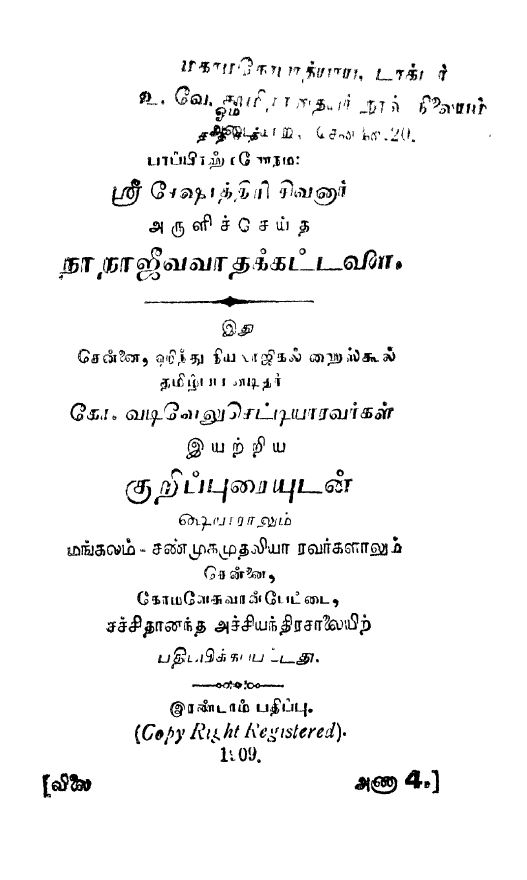 மகாமகோபாத்யாய, டாக்டர்
உ. வே. சாமிநாதையர் நூல் நிலையம்
ஓம்
அடையாறு, சென்னை.20.
ஸ்ரீ சேஷாத்திரி சிவனார்
அருளிச்செய்த
நாநாஜீவவாதக்கட்டளை.
இது
சென்னை, ஹிந்து தியலாஜிகல் ஹைஸ்கூல்
தமிழ்ப்பண்டிதர்
கோ. வடிவேலுசெட்டியாரவர்கள்
இயற்றிய
குறிப்புரையுடன்
மங்கலம் - சண்முகமுதலியா ரவர்களாலும்
சென்னை,
கோமளேசுவரன்பேட்டை,
சச்சிதானந்த அச்சியந்திரசாலையிற்
பதிப்பிக்கப்பட்டது.
இரண்டாம் பதிப்பு.
(Copy Right Registered).
1909.
[விலை அணா 4.]